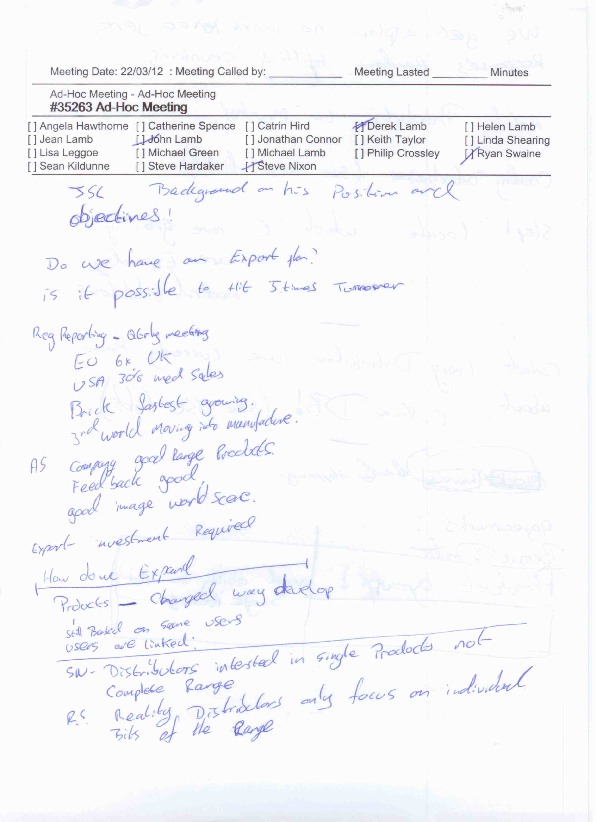 Meeting Date: 22/03/12 : Meeting Called by: ____________ Meeting Lasted _________ Minutes
Ad-Hoc Meeting - Ad-Hoc Meeting
#35263 Ad-Hoc Meeting
[ ] Angela Hawthorne [ ] Catherine Spence [ ] Catrin Hird [ ] Derek Lamb [ ] Helen Lamb
[ ] Jean Lamb [ ] John Lamb [ ] Jonathan Connor [ ] Keith Taylor [ ] Linda Shearing
[ ] Lisa Leggoe [ ] Michael Green [ ] Michael Lamb [ ] Philip Crossley [ ] Ryan Swaine
[ ] Sean Kildunne [ ] Steve Hardaker [ ] Steve Nixon
JSL Background on his Position and
objectives!
Do we have an Export plan?
is it possible to Hit 5 times Turnover
Reg Reporting - Qtrly meeting
EU 6x UK
USA 30% med Sales
Brick fastest growing.
3rd world Moving into manufacture.
AS Company good Range Products.
Feedback good,
good image world scene.
Export investment Required
How done Expand
Products - Changed way develop
still Based on same users
users are linked.
SN- Distributors intersted in single Products not
Complete Range
R.S. Reality Distributors only focus on individual
Bits of the Range